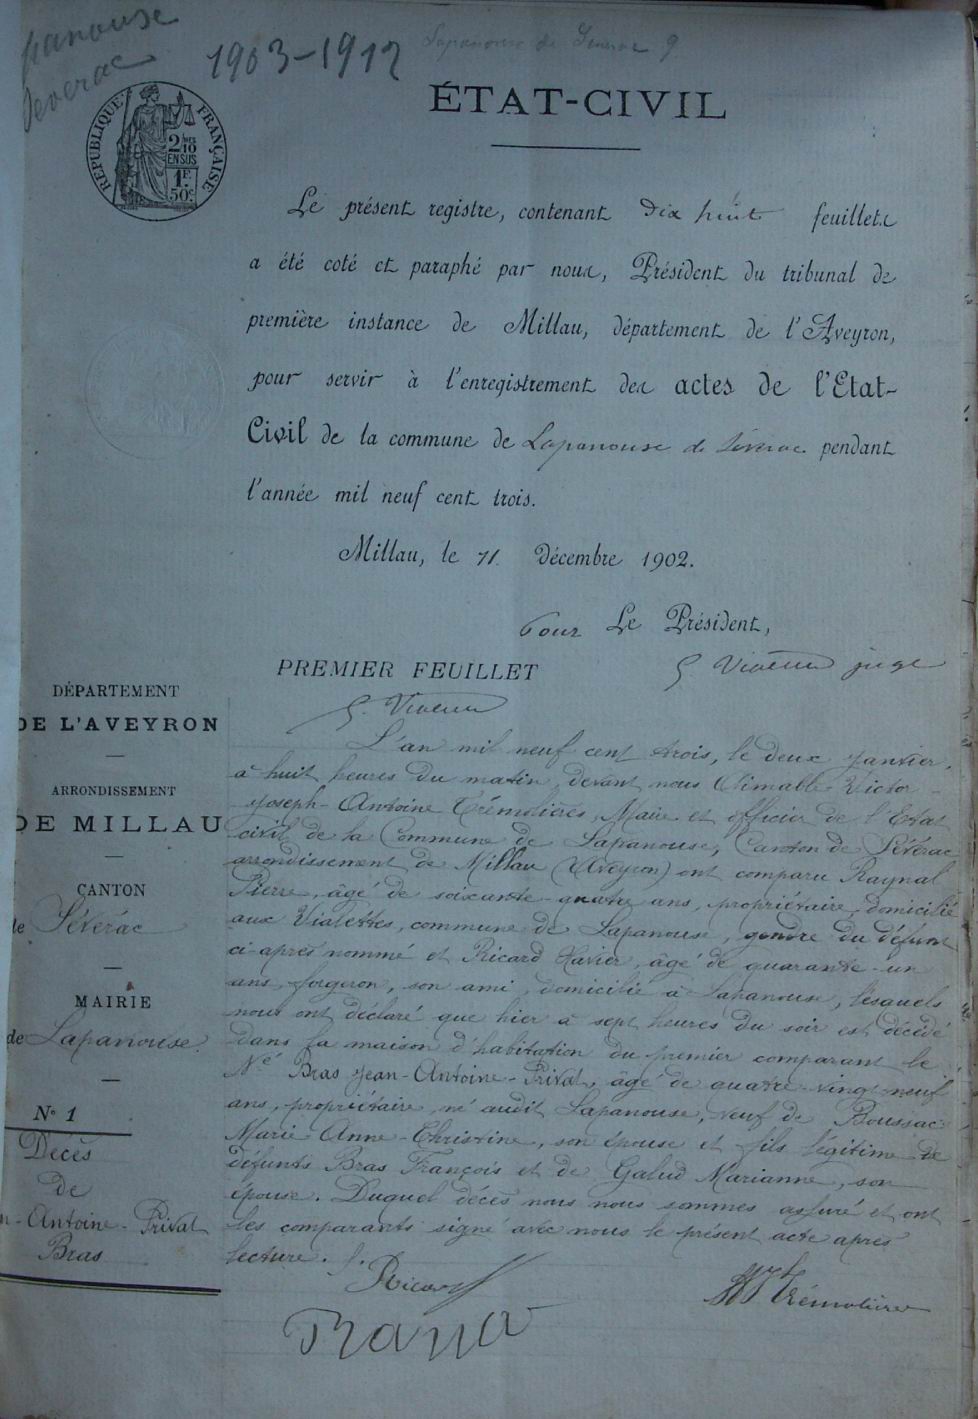 panouse
Severac
1903-1912
Lapanouse de Severac 9
RÉPUBLIQUE FRANÇAISE
2/10
EN SUS
1F.
50c.
ÉTAT-CIVIL
Le présent registre, contenant dix huit feuillets
a été coté et paraphé par nous, Président du tribunal de
première instance de Millau, département de l'Aveyron,
pour servir à l'enregistrement des actes de l'Etat-
Civil de la commune de Lapanouse de Séverac pendant
l'année mil neuf cent trois.
Millau, le 11 décembre 1902.
Pour Le Président,
juge
PREMIER FEUILLET
DÉPARTEMENT
DE L'AVEYRON
ARRONDISSEMENT
DE MILLAU
CANTON
de Sévérac
MAIRIE
de Lapanouse.
No 1
Décès
de
n-Antoine-Privat
Bras
L'an mil neuf cent trois, le deux janvier,
à huit heures du matin, devant nous Climable Victor-
Joseph-Antoine Trémolières, Maire et officier de l'Etat
civil de la Commune de Lapanouse, Canton de Sévérac
arrondissement de Millau (Aveyron) ont comparu Raynal
Pierre, âgé de soixante-quatre ans, propriétaire, domicilié
aux Vialettes, commune de Lapanouse, gendre du défunt
ci-après nommé et Ricard Xavier, âgé de quarante-un
ans, forgeron, son ami, domicilié à Lapanouse, lesquels
nous ont déclaré que hier à sept heures du soir est décédé
dans la maison d'habitation du premier comparant le
Né Bras Jean-Antoine-Privat, âgé de quatre-vingt-neuf
ans, propriétaire, né audit Lapanouse, veuf de Boussac
Marie Anne-Christine, son épouse et fils légitime de
défunts Bras François et de Galud Marianne, son
épouse. Duquel décès nous nous sommes assuré et ont
les comparants signé avec nous le présent acte après
lecture.
Ricard
Trémolières